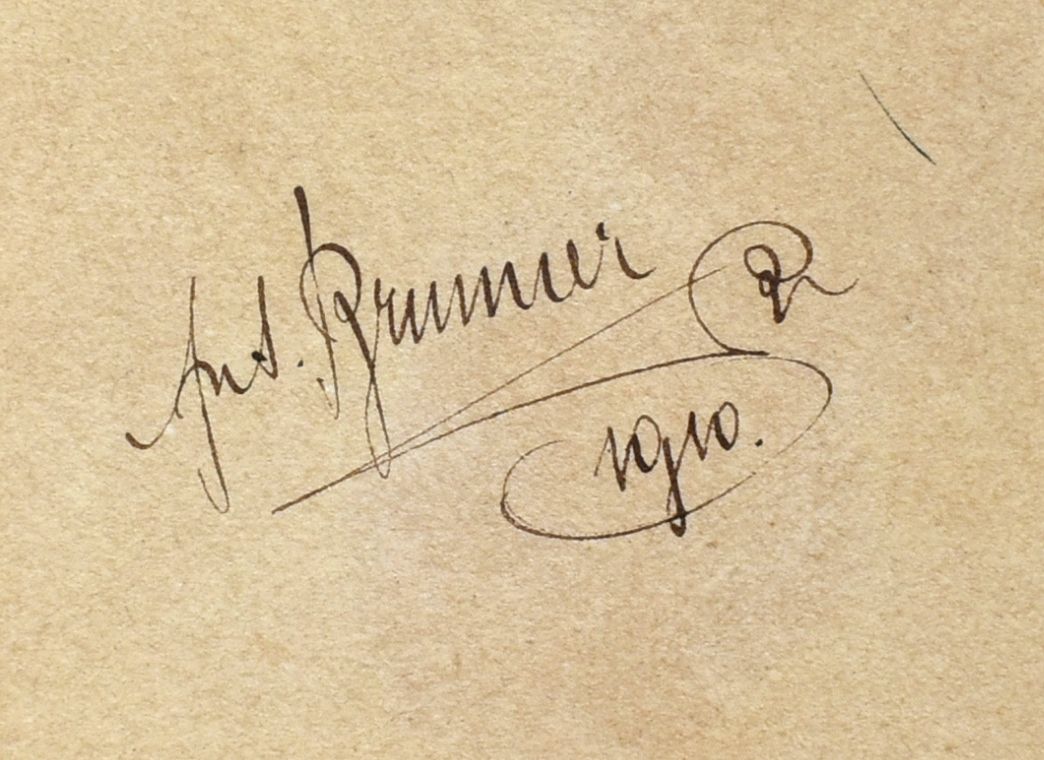 Ant. Brunner
1910.